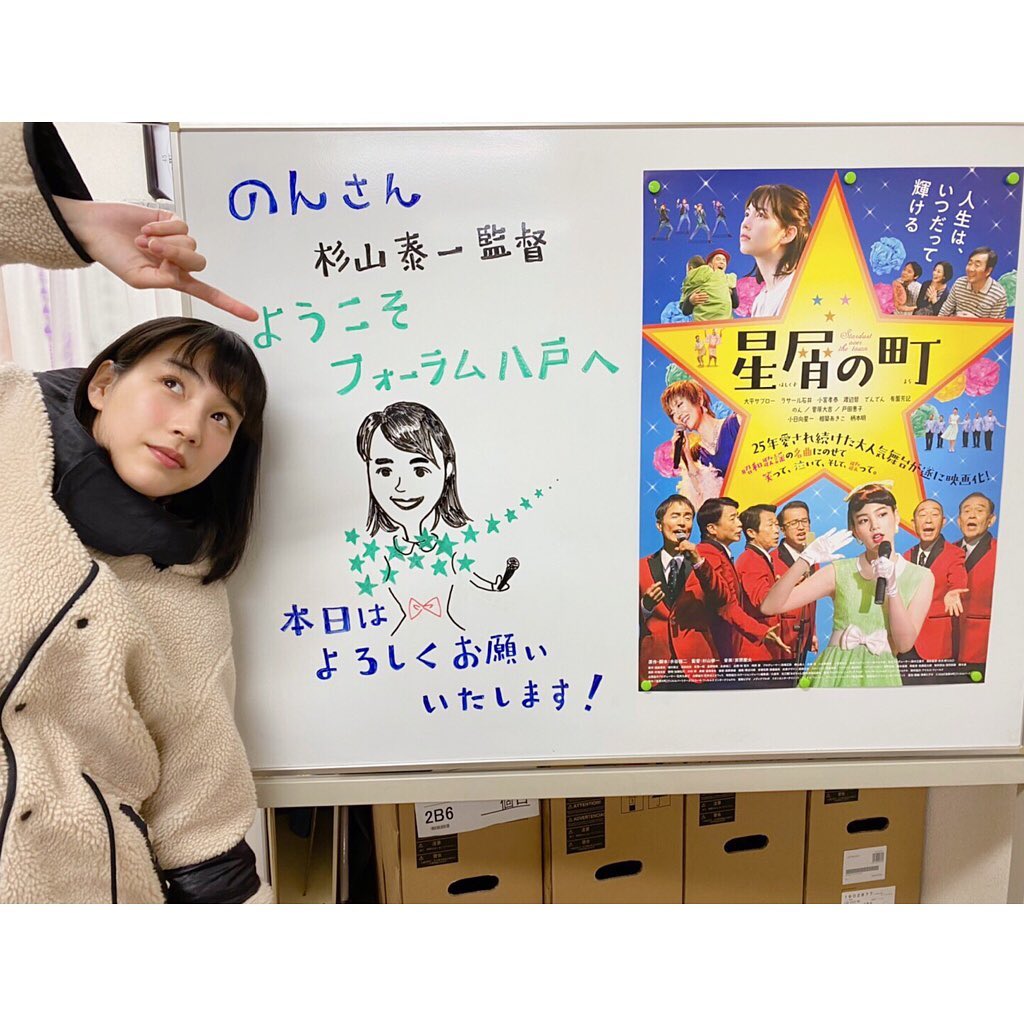 のんさん
杉山泰一監督
ようこそ
フォーラム八戸へ
本日は
よろしくお願い
いたします!
人生は、
いつだって
輝ける
Stardust
over
the town
星屑の町
ほしくず
まち
大平サブロー ラサール石井 小宮孝泰 渡辺哲 でんでん 有薗芳記
のん / 菅原大吉 / 戸田恵子
小日向星一 相築あきこ 柄本明
25年愛され続けた大人気舞台が遂に映画化!
昭和歌謡の名曲にのせて
笑って、泣いて、そして、歌って。
2B6
ATTENTION
注意